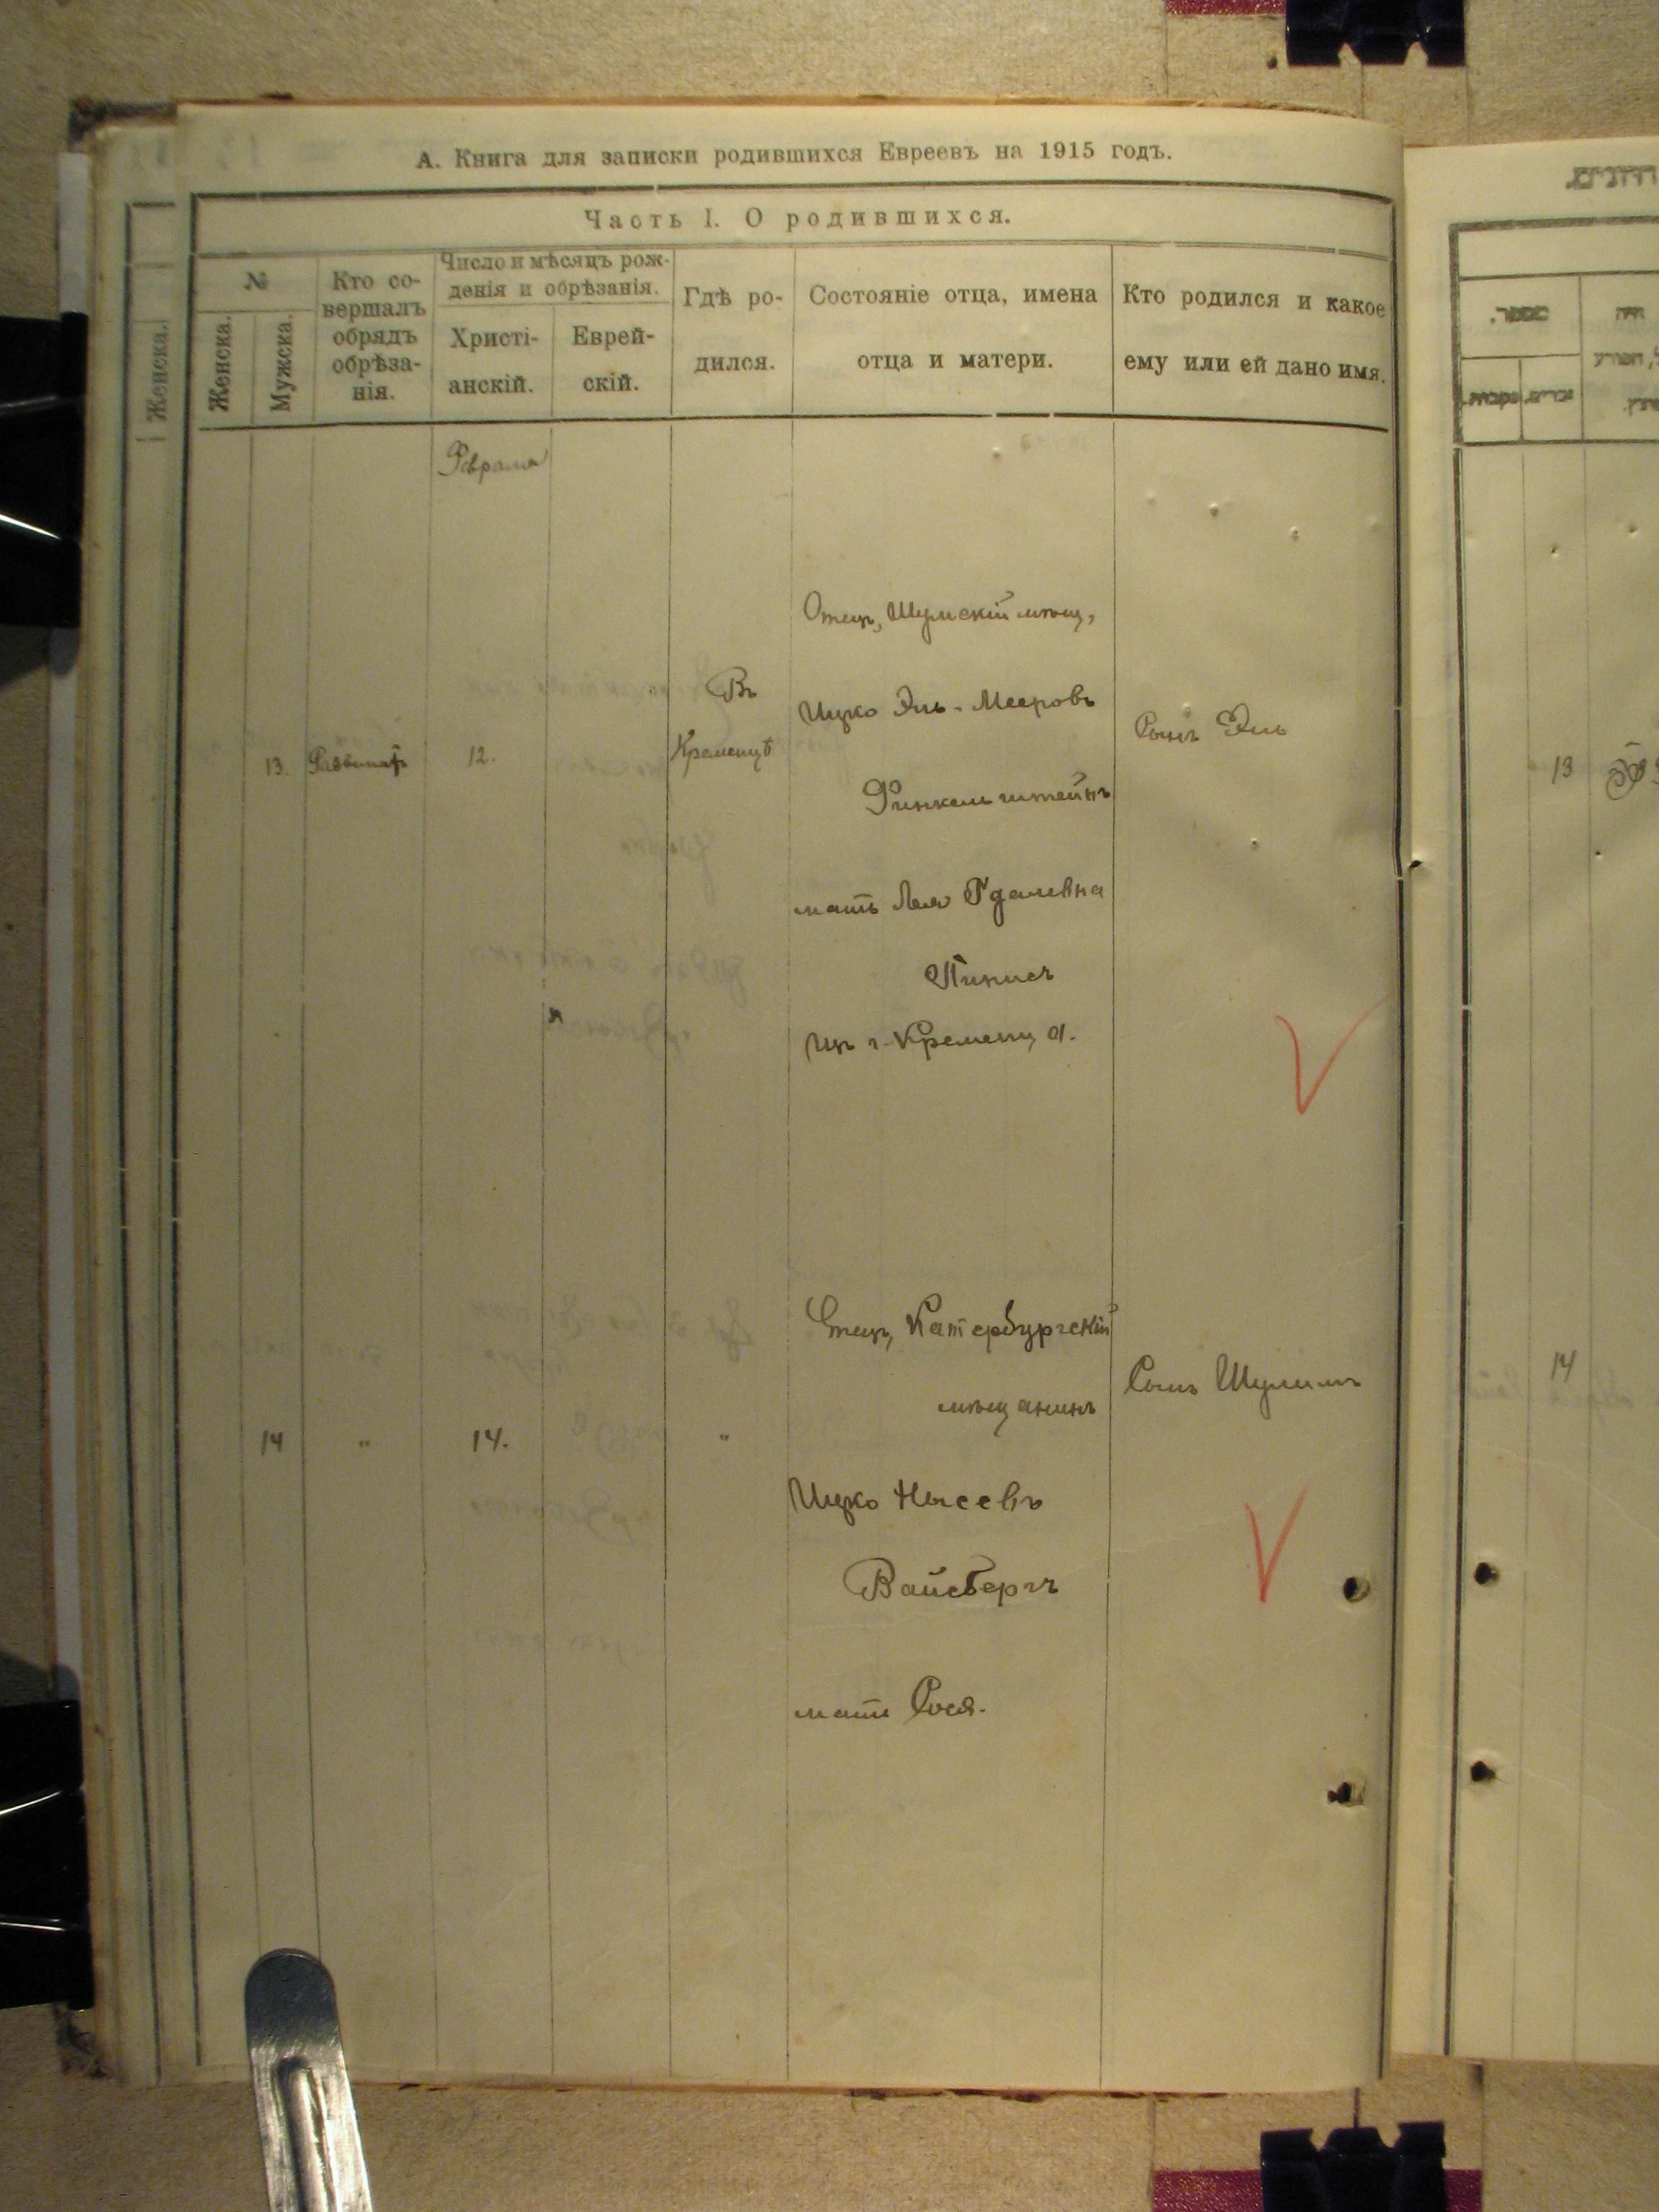 А. Книга для записки родившихся Евреевъ на 1915 годъ.
Часть I. О родившихся.
№
Женска.
Женска.
Мужска.
Кто со-
вершалъ
обрядъ
обрѣза-
нія.
Число и мѣсяцъ рож-
денія и обрѣзанія.
Христі-
анскій.
Еврей-
скій.
Гдѣ ро-
дился.
Состояніе отца, имена
отца и матери.
Кто родился и какое
ему или ей дано имя.
Февраля
13.
12.
Въ
Кременцѣ
Отецъ, Шумскій мѣщ,
Ицко Эль-Мееровъ
Финкельштейнъ
мать Лея Гдалевна
Из г. Кременца.
Сынъ Эль
14
"
14.
"
Отецъ, Катербургскій
мѣщанинъ
Ицко Нысевъ
Вайсбергъ
мать Сося.
Сынъ Шулимъ
13
14